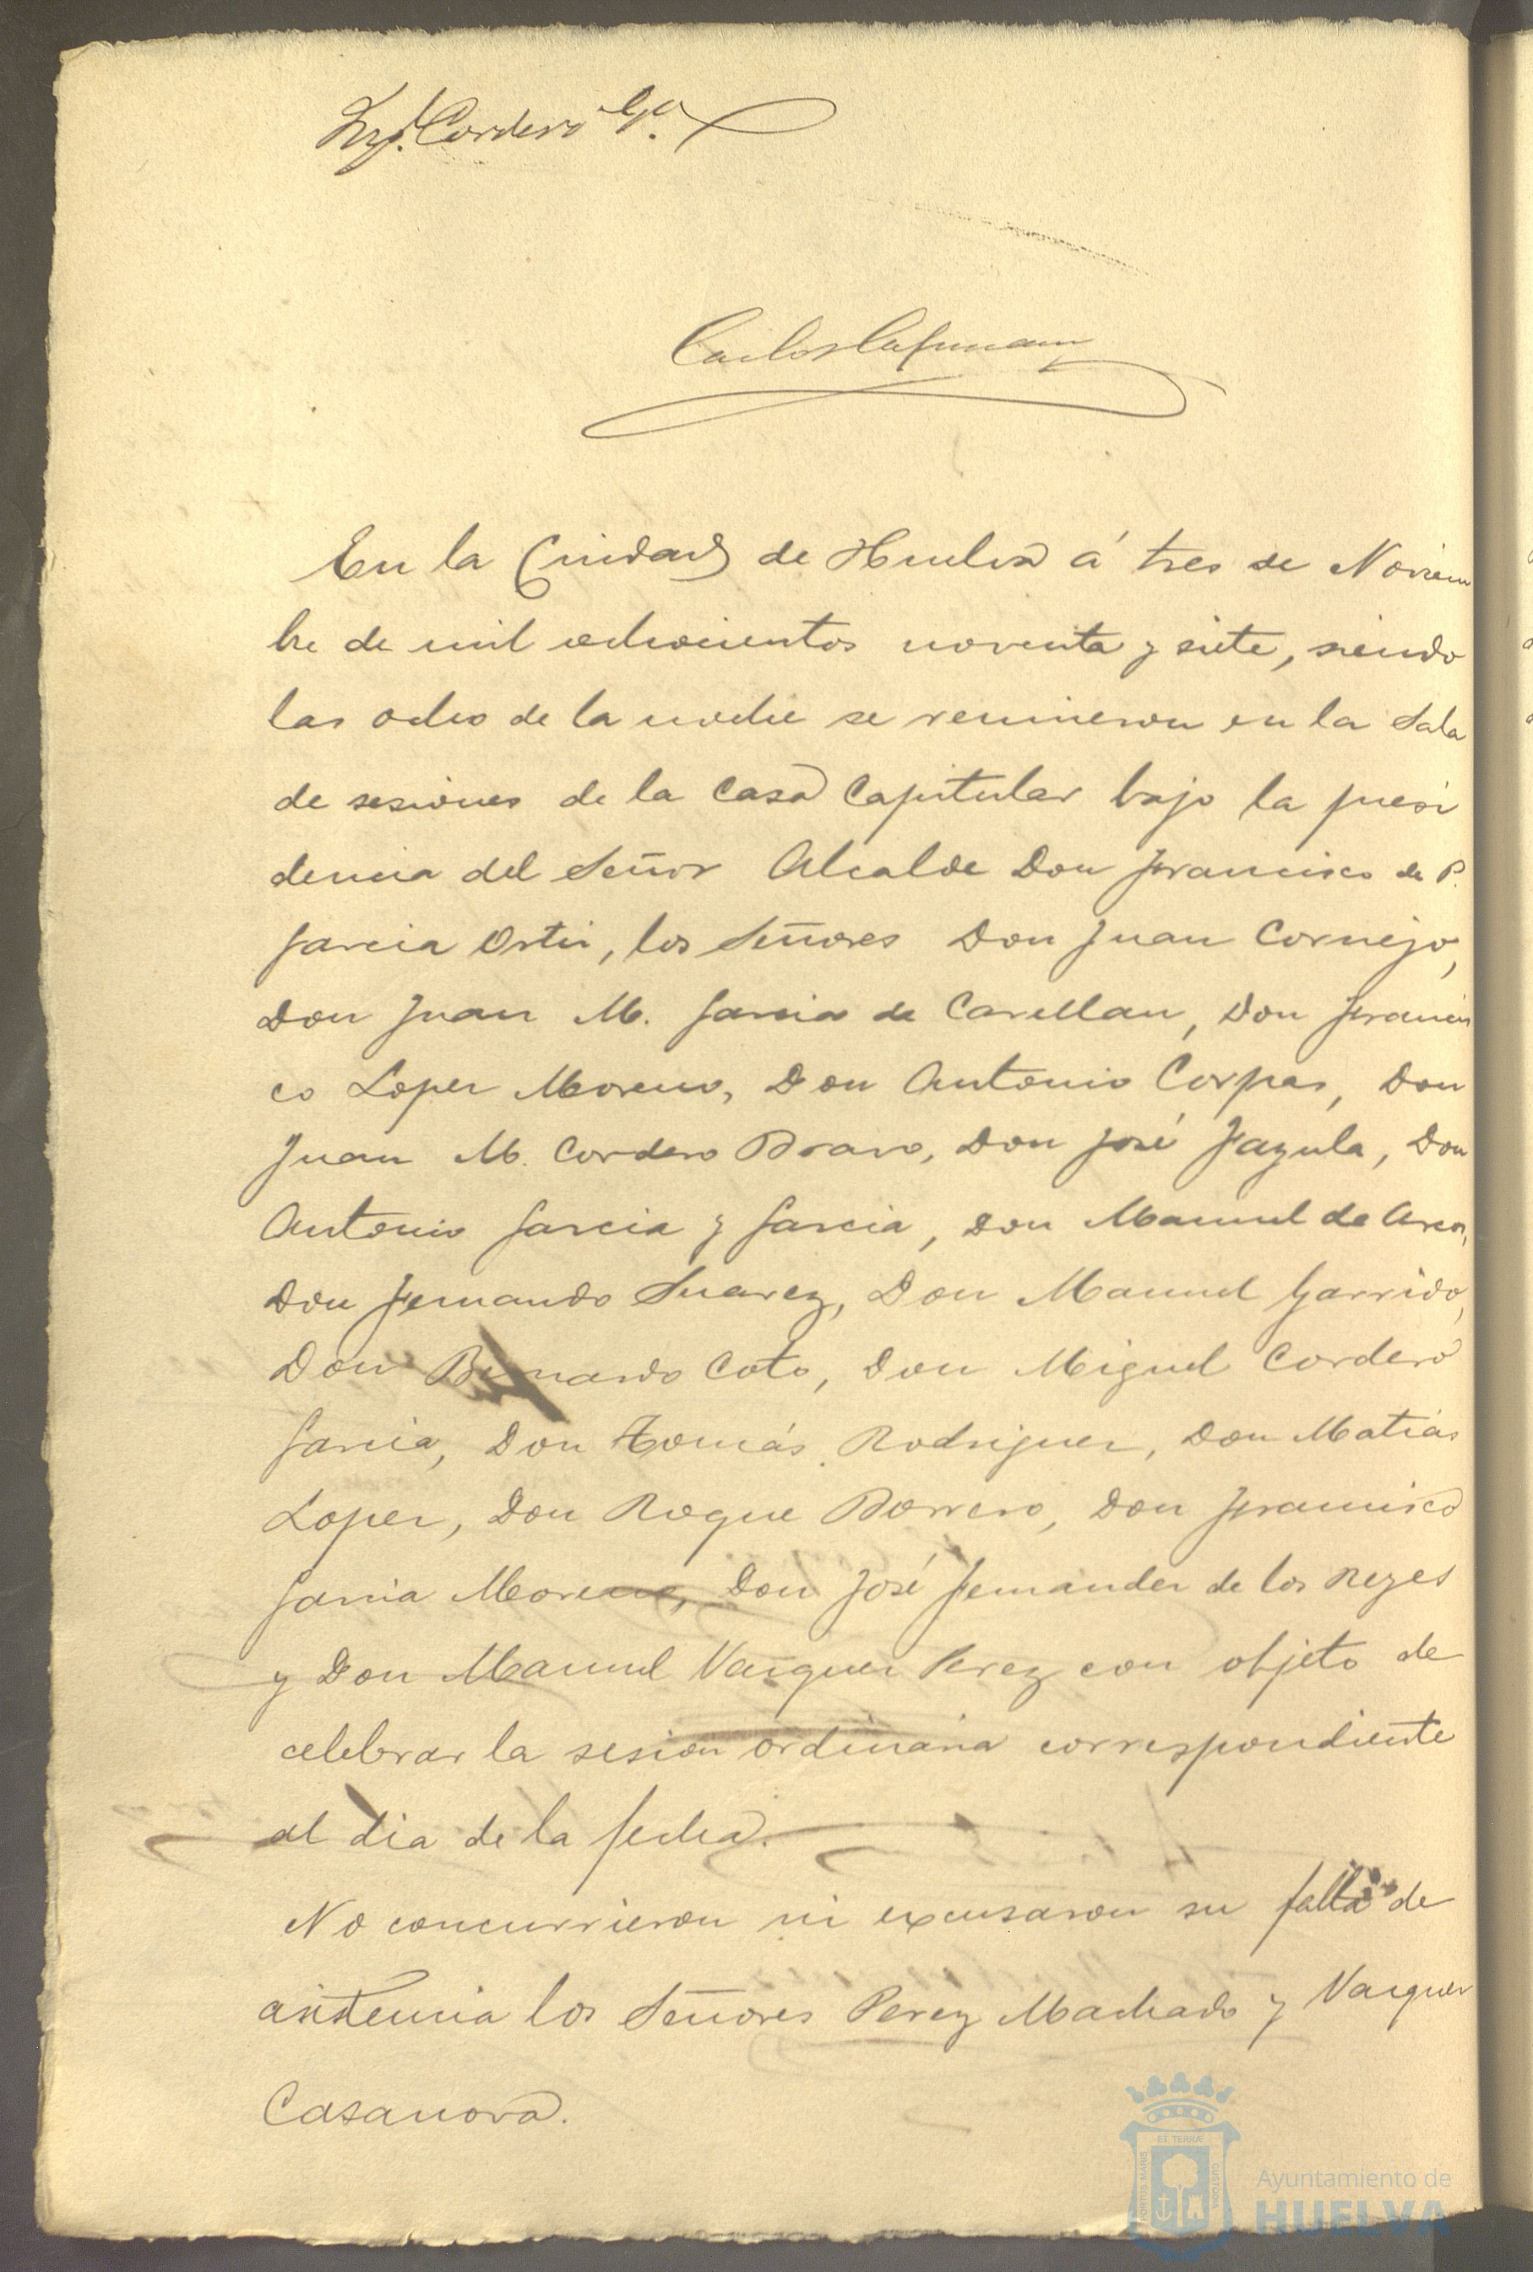 Cordero Ga.
Carlos
En la Ciudad de Huelva á tres de Noviem
bre de mil ochocientos noventa y siete, siendo
las ocho de la noche se reunieron en la Sala
de sesiones de la Casa Capitular bajo la presi
dencia del Señor Alcalde Don Francisco de P.
Garcia Ortiz, los Señores Don Juan Cornejo,
Don Juan M. Garcia de Cavellan, Don Francis
co Lopez Moreno, Don Antonio Corpas, Don
Juan M. Cordero Bravo, Don José Jazula, Don
Antonio Garcia y Garcia, Don Manuel de Arcos,
Don Fernando Suarez, Don Manuel Garrido,
Don Bernardo Coto, Don Miguel Cordero
Garcia, Don Tomás Rodriguez, Don Matias
Lopez, Don Roque Borrero, Don Francisco
Garcia Moreno, Don José Fernandez de los Reyes
y Don Manuel Vazquez Perez con objeto de
celebrar la sesion ordinaria correspondiente
al dia de la fecha.
No concurrieron ni excusaron su falta de
asistencia los Señores Perez Machado y Vazquez
Casanova.
PORTUS MARIS ET TERRÆ CUSTODIA
Ayuntamiento de
HUELVA